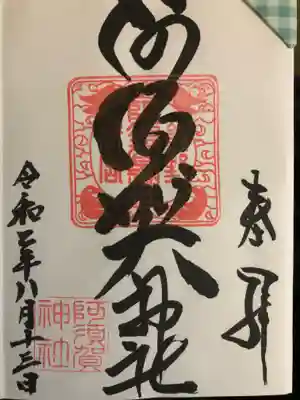 奉拝
阿須賀神社
阿須賀
神社
令和二年八月十三日